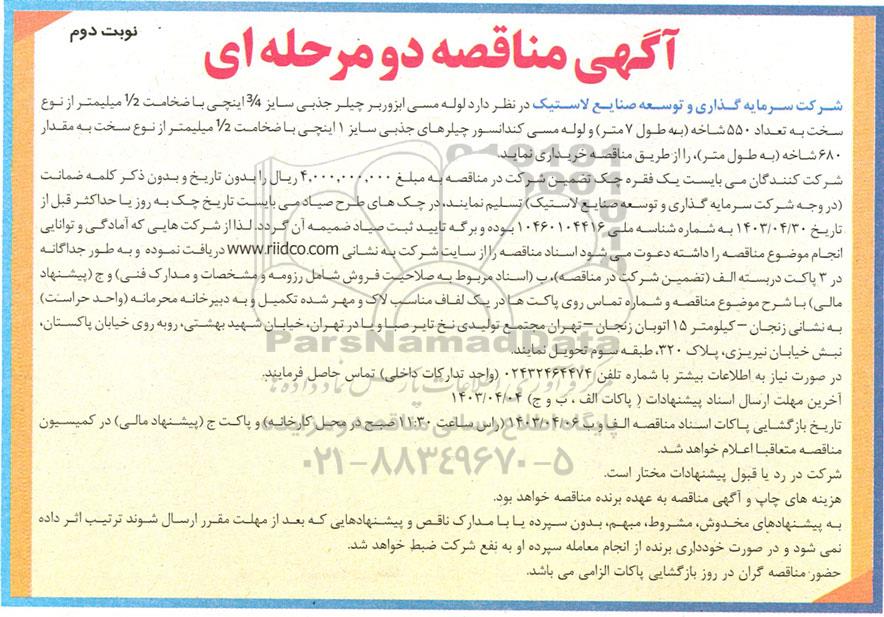 نوبت دوم
آگهی مناقصه دو مرحله ای
شرکت سرمایه گذاری و توسعه صنایع لاستیک در نظر دارد لوله مسی ابزوربر چیلر جذبی سایز ¾ اینچی با ضخامت ½ میلیمتر از نوع
سخت به تعداد ۵۵۰ شاخه (به طول ۷ متر) و لوله مسی کندانسور چیلرهای جذبی سایز ۱ اینچی با ضخامت ½ میلیمتر از نوع سخت به مقدار
۶۸۰ شاخه (به طول متر)، را از طریق مناقصه خریداری نماید.
شرکت کنندگان می بایست یک فقره چک تضمین شرکت در مناقصه به مبلغ ۴,۰۰۰,۰۰۰,۰۰۰ ریال را بدون تاریخ و بدون ذکر کلمه ضمانت
(در وجه شرکت سرمایه گذاری و توسعه صنایع لاستیک) تسلیم نمایند، در چک های طرح صیاد می بایست تاریخ چک به روز یا حداکثر قبل از
تاریخ ۱۴۰۳/۰۴/۳۰ به شماره شناسه ملی ۱۰۴۶۰۱۰۴۴۱۶ بوده و برگه تایید ثبت صیاد ضمیمه آن گردد. لذا از شرکت هایی که آمادگی و توانایی
انجام موضوع مناقصه را داشته دعوت می شود اسناد مناقصه را از سایت شرکت به نشانی www.riidco.com دریافت نموده و به طور جداگانه
در ۳ پاکت دربسته الف (تضمین شرکت در مناقصه)، ب (اسناد مربوط به صلاحیت فروش شامل رزومه و مشخصات و مدارک فنی) و ج (پیشنهاد
مالی) با شرح موضوع مناقصه و شماره تماس روی پاکت ها در یک لفاف مناسب لاک و مهر شده تکمیل و به دبیرخانه محرمانه (واحد حراست)
به نشانی زنجان – کیلومتر ۱۵ اتوبان زنجان – تهران مجتمع تولیدی نخ تایر صبا و یا در تهران، خیابان شهید بهشتی، روبه روی خیابان پاکستان،
نبش خیابان نیریزی، پلاک ۳۲۰، طبقه سوم تحویل نمایند.
در صورت نیاز به اطلاعات بیشتر با شماره تلفن ۰۲۴۳۲۴۶۴۴۷۴ (واحد تدارکات داخلی) تماس حاصل فرمایند.
آخرین مهلت ارسال اسناد پیشنهادات ( پاکات الف ، ب و ج) ۱۴۰۳/۰۴/۰۴
تاریخ بازگشایی پاکات اسناد مناقصه الف و ب ۱۴۰۳/۰۴/۰۶ (راس ساعت ۱۱:۳۰ صبح در محل کارخانه) و پاکت ج (پیشنهاد مالی) در کمیسیون
مناقصه متعاقبا اعلام خواهد شد.
شرکت در رد یا قبول پیشنهادات مختار است.
هزینه های چاپ و آگهی مناقصه به عهده برنده مناقصه خواهد بود.
به پیشنهادهای مخدوش، مشروط، مبهم، بدون سپرده یا با مدارک ناقص و پیشنهادهایی که بعد از مهلت مقرر ارسال شوند ترتیب اثر داده
نمی شود و در صورت خودداری برنده از انجام معامله سپرده او به نفع شرکت ضبط خواهد شد.
حضور مناقصه گران در روز بازگشایی پاکات الزامی می باشد.
ParsNamadData
پایگاه اطلاع رسانی مناقصه و مزایده
۰۲۱-۸۸۳۴۹۶۷۰-۵